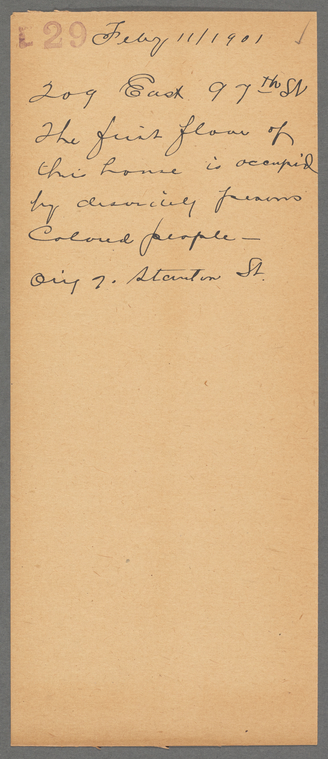 L 29 Feby 11/1901
209 East 97th St
The first floor of
this house is occupied
by disorderly persons
Colored people —
Orig 7. Stanton St.